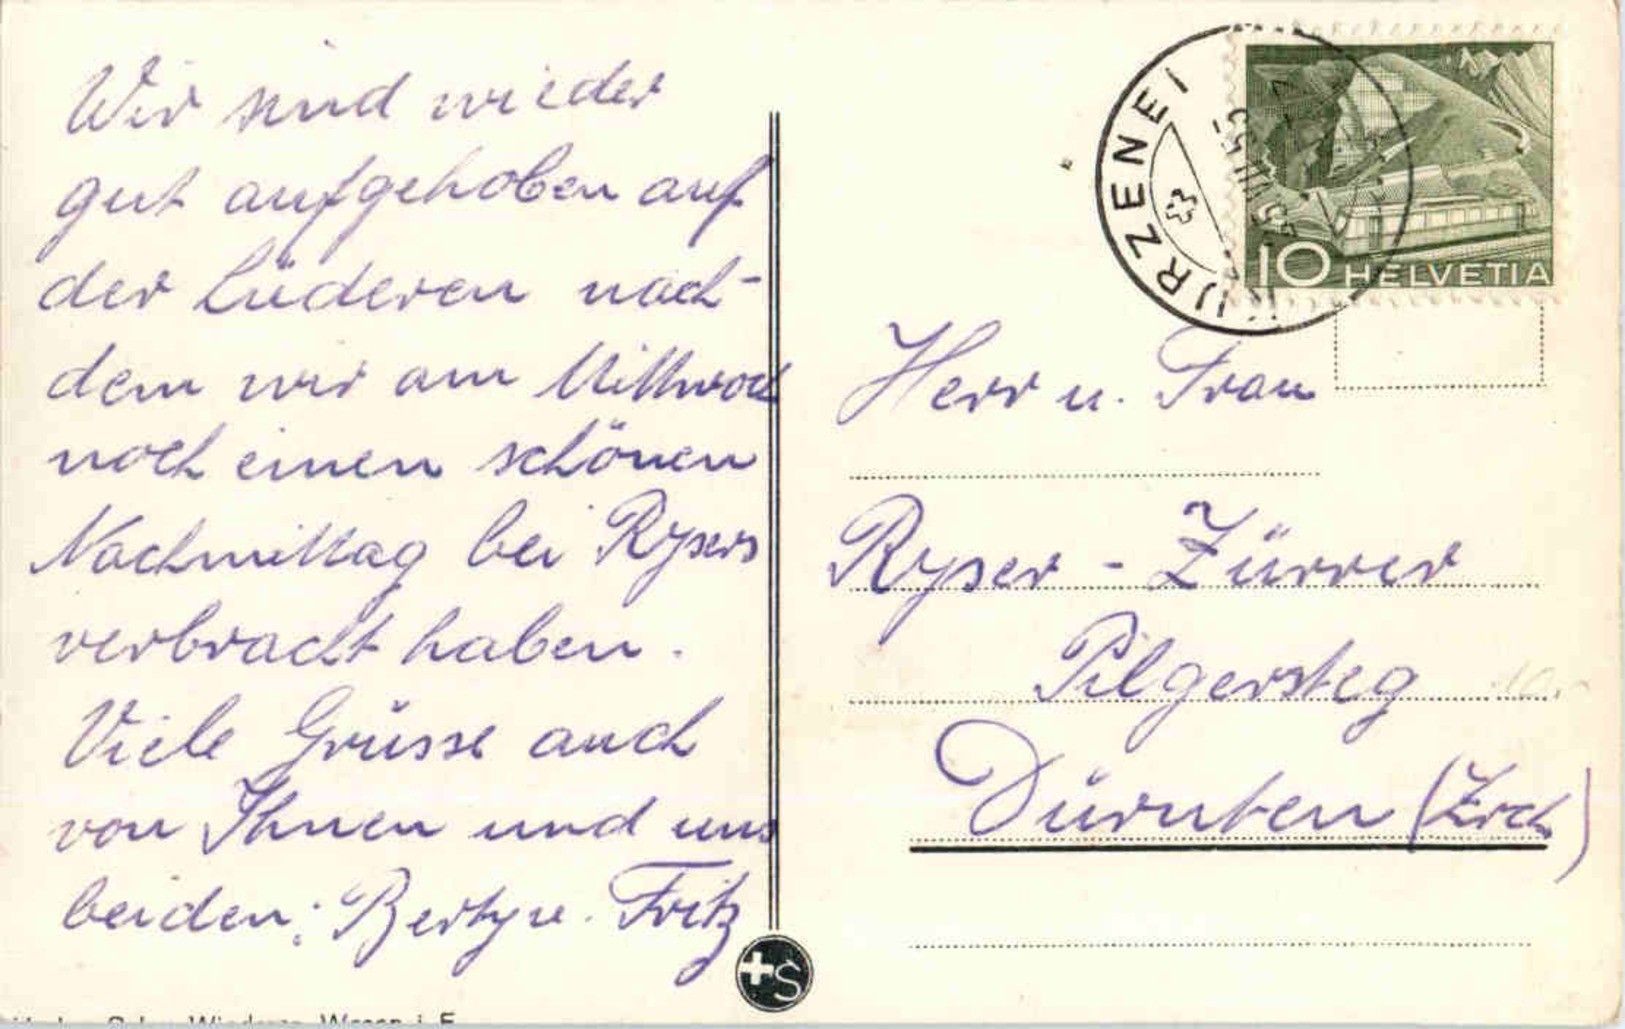 Wir sind wieder
gut aufgehoben auf
der Lüderen nach-
dem wir am Mittwoch
noch einen schönen
Nachmittag bei Rysers
verbracht haben.
Viele Grüsse auch
von Ihnen und uns
beiden: Berty u. Fritz
KURZENEI
10 HELVETIA
Herr u. Frau
Ryser - Zürrer
Pilgersteg
Dürnten (Zrch)
+S